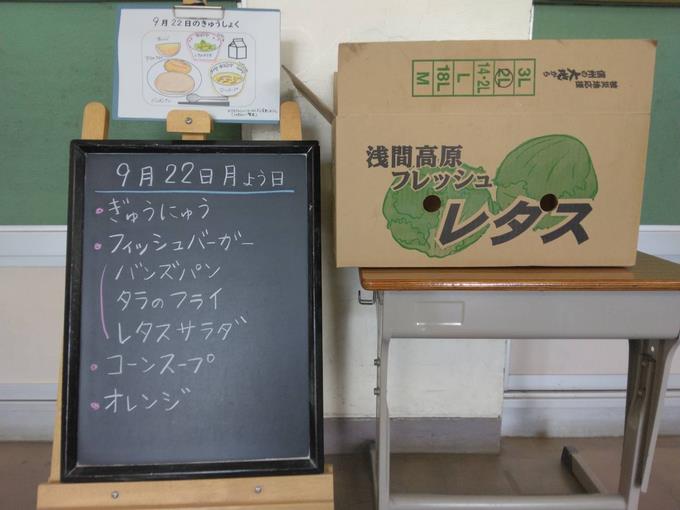 9月22日のきゅうしょく
9月22日月よう日
・ぎゅうにゅう
・フィッシュバーガー
バンズパン
タラのフライ
レタスサラダ
・コーンスープ
・オレンジ
3L
2L
14・2L
L
18L
M
信州の大地から
浅間高原
フレッシュ
レタス